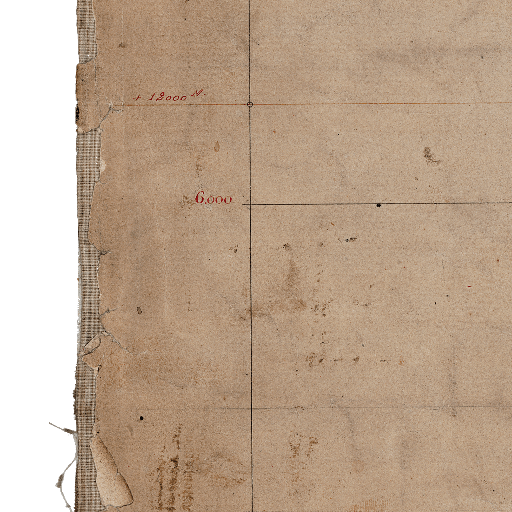 + 12000 N.
6.000